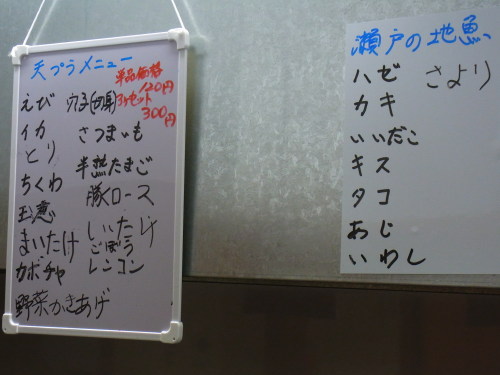 天プラメニュー
単品価格
120円
3ヶセット
300円
えび
イカ
とり
ちくわ
玉葱
まいたけ
カボチャ
野菜かきあげ
さつまいも
半熟たまご
豚ロース
しいたけ
ごぼう
レンコン
瀬戸の地魚
ハゼ
カキ
いいだこ
キス
タコ
あじ
いわし
さより